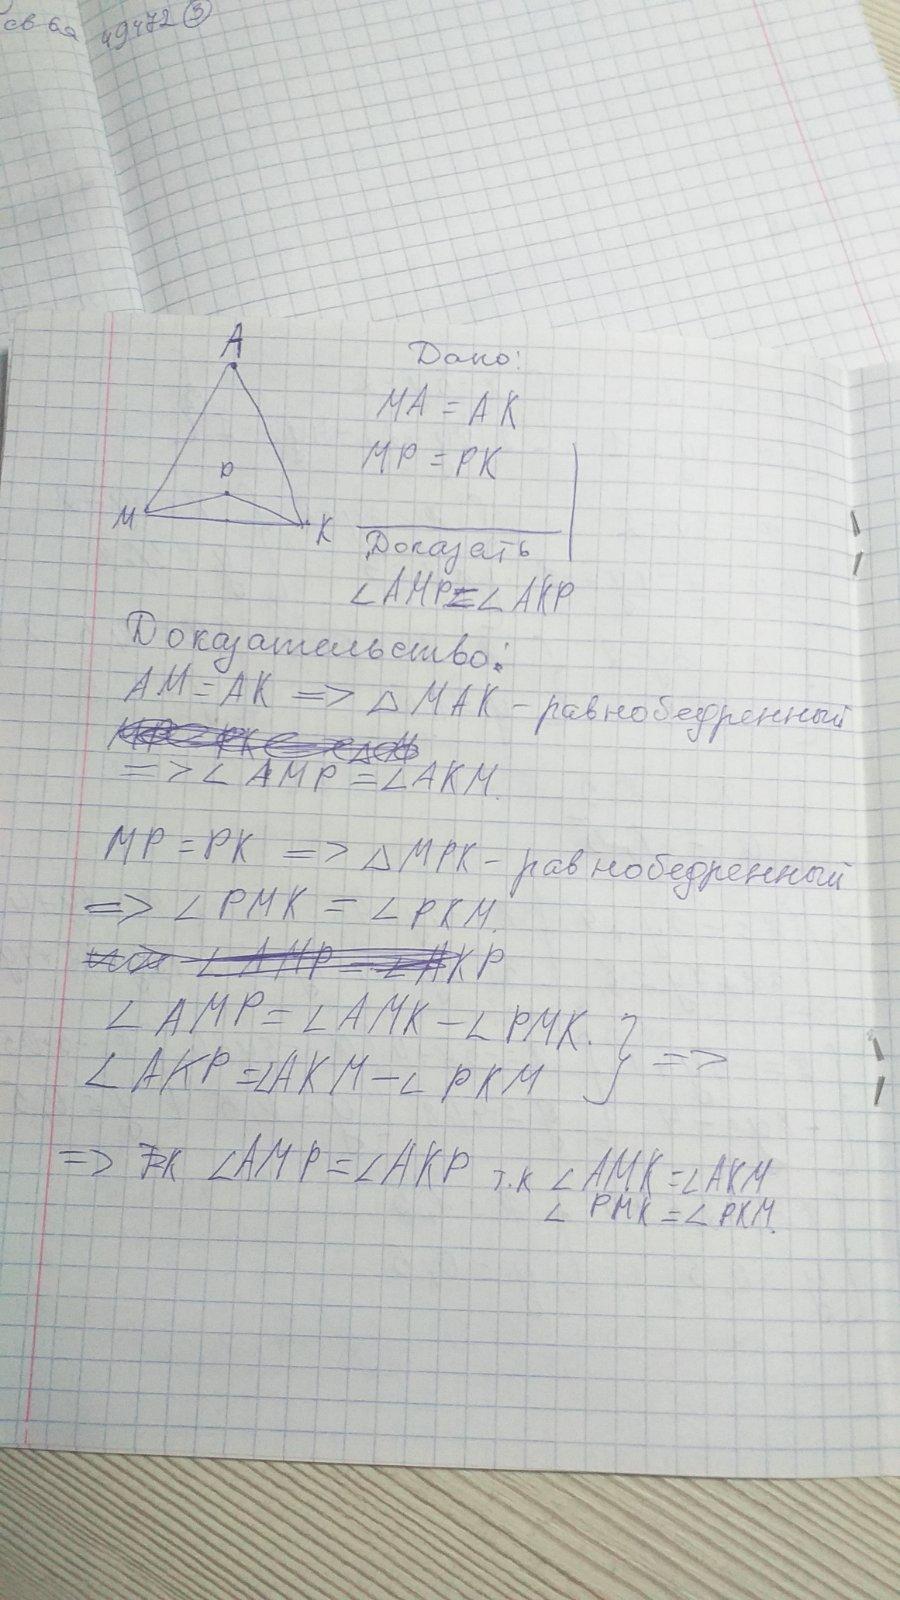 св 6а
49472 ③
A
P
M
K
Дано:
MA = AK
MP = PK
Доказать
∠AMP = ∠AKP
Доказательство:
AM = AK => △MAK - равнобедренный
=> ∠AMP = ∠AKM.
MP = PK => △MPK - равнобедренный
=> ∠PMK = ∠PKM.
∠AMP = ∠AKP
∠AMP = ∠AMK - ∠PMK. }
∠AKP = ∠AKM - ∠PKM } =>
=> ∠AMP = ∠AKP т.к ∠AMK = ∠AKM
∠PMK = ∠PKM.